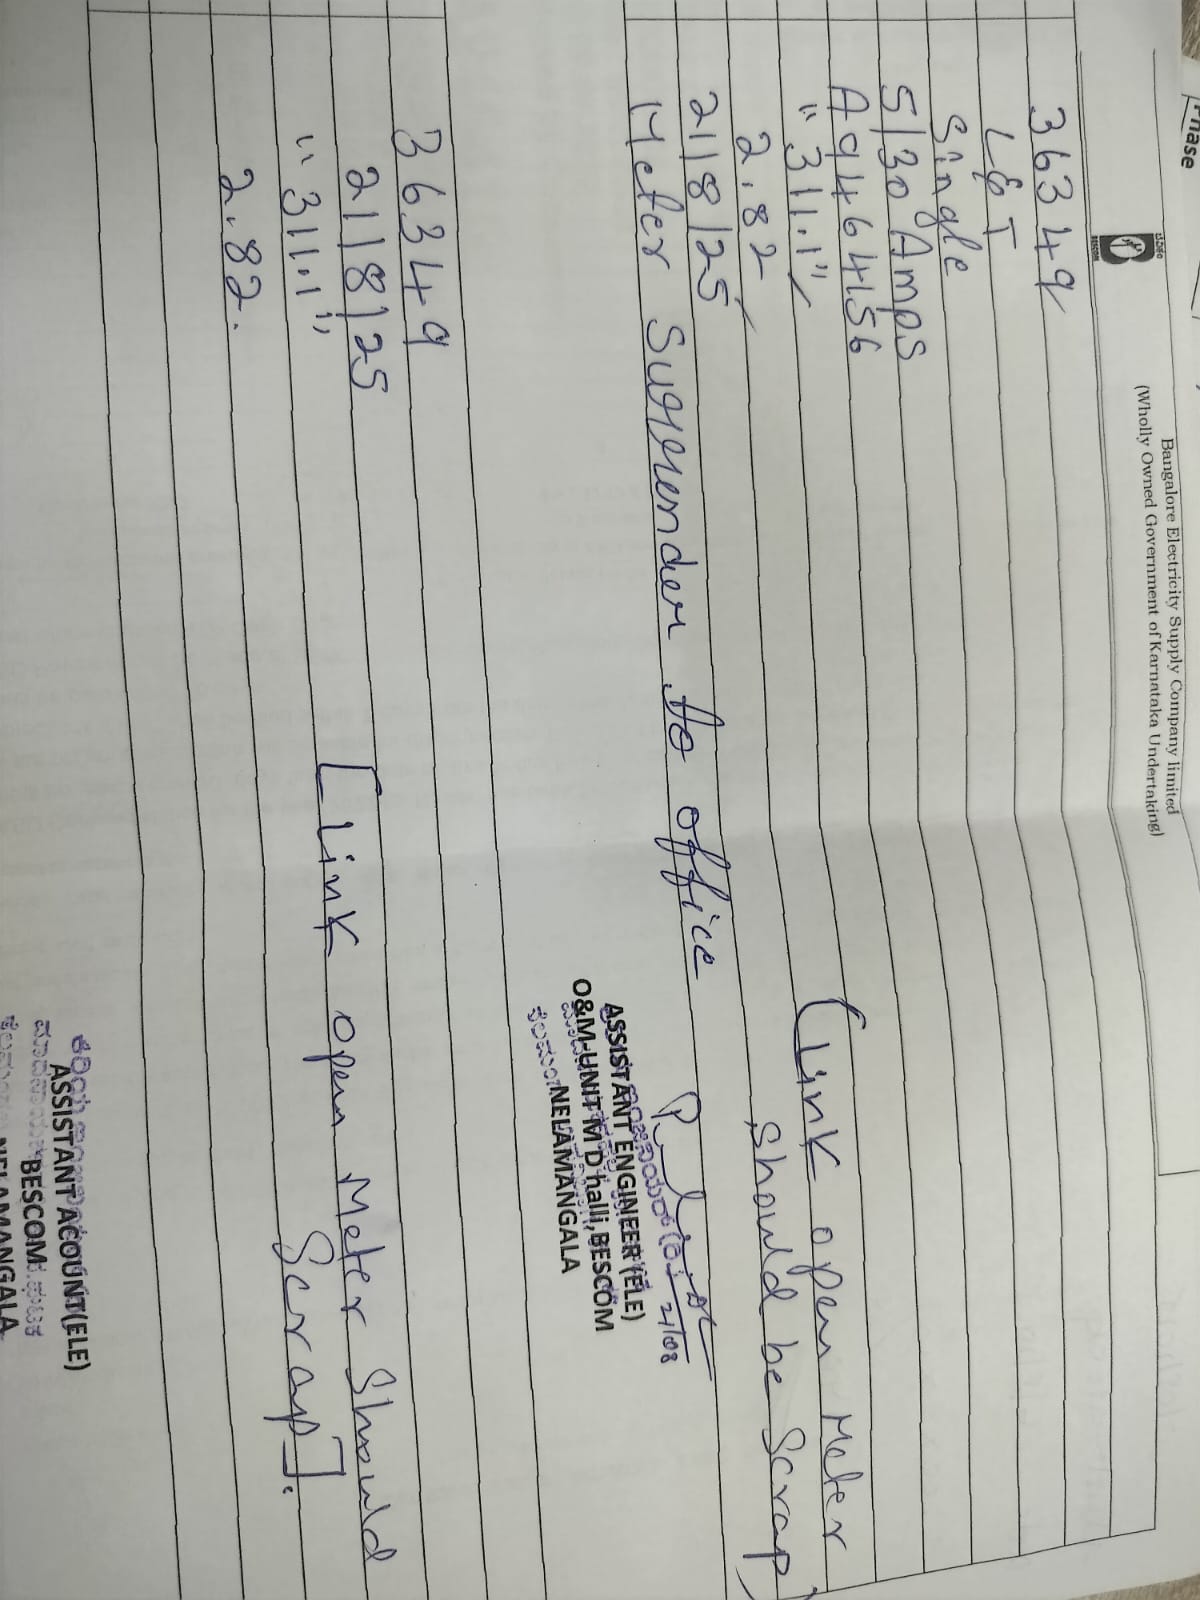 Phase
Bangalore Electricity Supply Company limited
(Wholly Owned Government of Karnataka Undertaking)
BESCOM
36349
L&T
Single
5/30 Amps
A9464156
"311.1"
(Link open Meter
2.82
should be Scrap)
21/8/25
Meter Surrender to office
21/08
ASSISTANT ENGINEER (ELE)
O&M-UNIT M D halli, BESCOM
NELAMANGALA
36349
21/8/25
[Link open Meter Should
"311.1"
Scrap].
2.82.
ASSISTANT ACOUNT(ELE)
BESCOM
NELAMANGALA